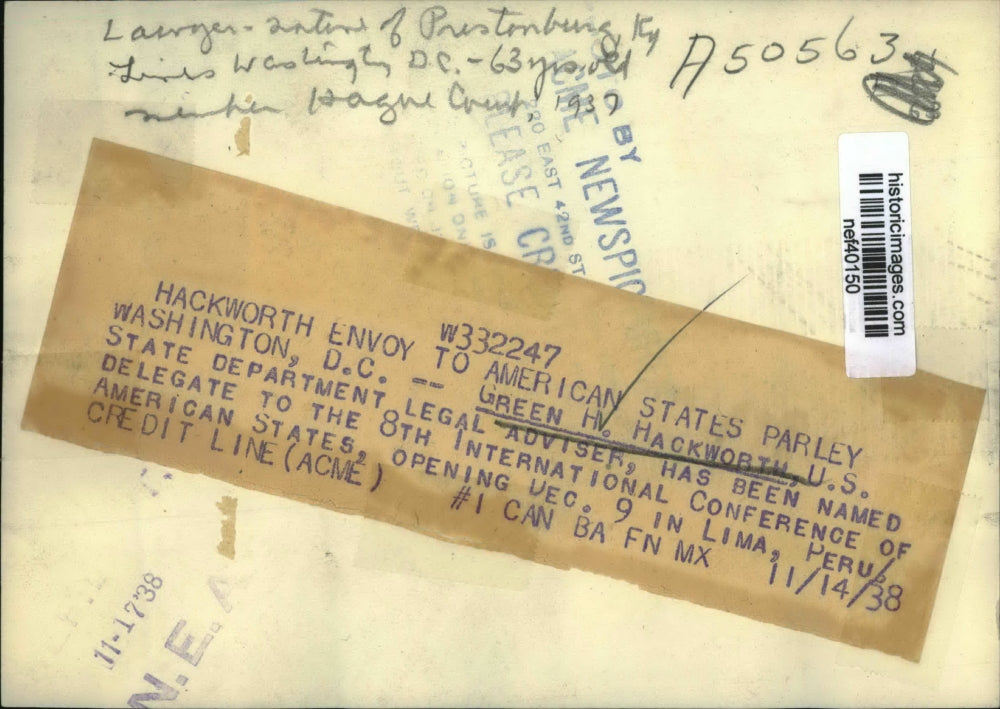 Lawyer - native of Prestonburg, Ky
Lives Washington, D.C. - 63 yrs. old
member Hague Court, 1937
A50563
BY
ACME NEWSPIC
EAST 42ND ST
PICTURE IS
historicimages.com
nef40150
W332247
HACKWORTH ENVOY TO AMERICAN STATES PARLEY
WASHINGTON, D.C. -- GREEN H. HACKWORTH, U.S.
STATE DEPARTMENT LEGAL ADVISER, HAS BEEN NAMED
DELEGATE TO THE 8TH INTERNATIONAL CONFERENCE OF
AMERICAN STATES, OPENING DEC. 9 IN LIMA, PERU.
CREDIT LINE (ACME) #1 CAN BA FN MX 11/14/38
11-17'38
N.E.A